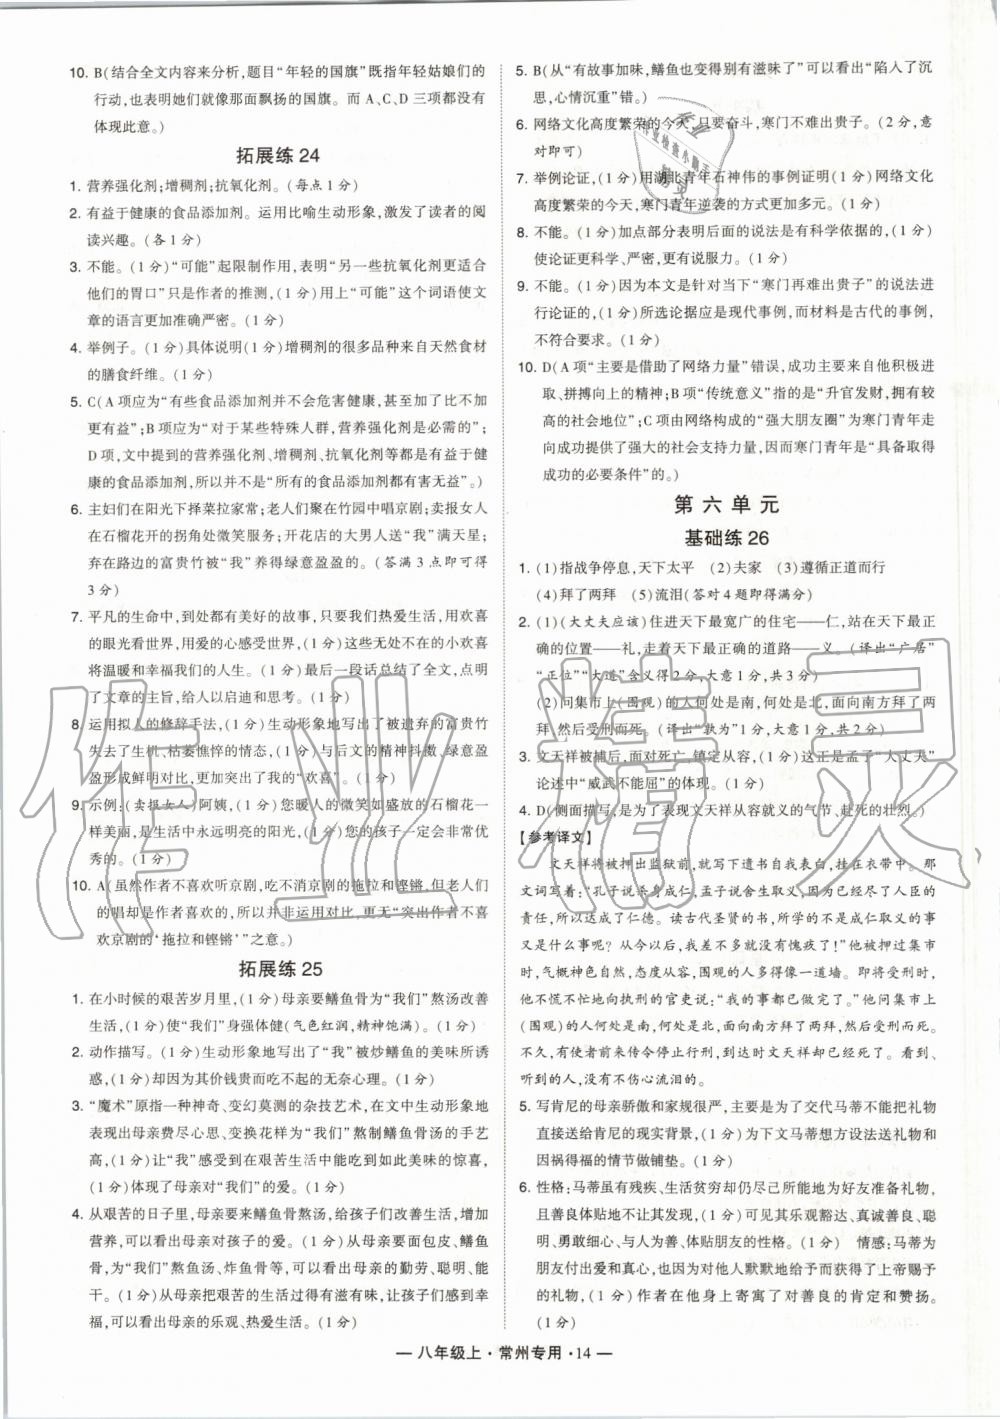 10. B(结合全文内容来分析,题目“年轻的国旗”既指年轻姑娘们的
行动,也表明她们就是那面飘扬的国旗。而 A、C、D 三项都没有
体现此意。)
拓展练 24
1. 营养强化剂;增稠剂;抗氧化剂。(每点 1 分)
2. 有益于健康的食品添加剂。运用比喻生动形象,激发了读者的阅
读兴趣。(各 1 分)
3. 不能。(1 分)“可能”起限制作用,表明“另一些抗氧化剂更适合
他们的胃口”只是作者的推测,(1 分)用上“可能”这个词语使文
章的语言更加准确严密。(1 分)
4. 举例子。(1 分)具体说明(1 分)增稠剂的很多品种来自天然食材
的膳食纤维。(1 分)
5. C(A 项应为“有些食品添加剂并不会危害健康,甚至会对健康更
加有益”;B项应为“对于某些特殊人群,营养强化剂是必需的”;
D项,文中提到的营养强化剂、增稠剂、抗氧化剂等都是有益于
健康的,但并不能说“所有的食品添加剂都有害无益”。)
6. 主妇们在阳光下择菜拉家常;老人们聚在竹园中唱京剧;卖报女人
在石榴花开的拐角处微笑服务;开花店的大男人送“我”满天星;
弃在路边的富贵竹被“我”养得绿意盈盈的。(答满 3 点即可得
3 分)
7. 平凡的生命中,到处都有美好的故事,只要我们热爱生活,用欢喜
的眼光看世界,用爱的心感受世界,(1 分)这些无处不在的小欢喜
将温暖和幸福我们的人生。(1 分)最后一段话总结了全文,点明
了文章的主旨,给人以启迪和思考。(1 分)
8. 运用拟人的修辞手法,(1 分)生动形象地写出了被遗弃的富贵竹
失去了生机、枯萎憔悴的情态,(1 分)与后文的精神抖擞、绿意盈
盈形成鲜明对比,更加突出了我的“欢喜”。(1 分)
9. 示例:(卖报女人)阿姨,(1 分)您暖人的微笑如盛放的石榴花一
样美丽,是生活中永远明亮的阳光,(1 分)您的孩子一定会非常优
秀的。(1 分)
10. A(虽然作者不喜欢听京剧,吃不消京剧的拖拉和铿锵,但老人们
的唱却是作者喜欢的,所以并非运用对比,更无“突出作者不喜
欢京剧的‘拖拉和铿锵’”之意。)
拓展练 25
1. 在小时候的艰苦岁月里,(1 分)母亲要鳝鱼骨为“我们”熬汤改善
生活,(1 分)使“我们”身强体健(气色红润,精神饱满)。(1 分)
2. 动作描写。(1 分)生动形象地写出了“我”被炒鳝鱼的美味所诱
惑,(1 分)却因为其价钱贵而吃不起的无奈心理。(1 分)
3. “魔术”原指一种神奇、变幻莫测的杂技艺术,在文中生动形象地
表现了母亲费尽心思、变换花样为“我们”熬制鳝鱼骨汤的手艺
高,(1 分)让“我”感受到在艰苦生活中能吃到如此美味的惊喜,
(1 分)体现了母亲对“我们”的爱。(1 分)
4. 从艰苦的日子里,母亲要鳝鱼骨熬汤,给孩子们改善生活,增加
营养,可以看出母亲对孩子的爱。(1 分)从母亲要面包皮、鳝鱼
骨为“我们”熬鱼汤、炸鱼骨等,可以看出母亲的勤劳、聪明、能
干。(1 分)从母亲把艰苦的生活过得有滋有味,让孩子们感到快乐,
可以看出母亲的乐观、热爱生活。(1 分)
5. B(从“有故事加味,鳝鱼也变得别有滋味了”可以看出“陷入了沉
思,心情沉重”错。)
6. 网络文化高度繁荣的今天,只要奋斗,寒门不难出贵子。(2 分,意
对即可)
7. 举例论证,(1 分)用湖北青年石神伟的事例证明(1 分)网络文化
高度繁荣的今天,寒门青年逆袭的方式更加多元。(1 分)
8. 不能。(1 分)加点部分表明后面的说法是有科学依据的,(1 分)
使论证更科学、严密,更有说服力。(1 分)
9. 不能。(1 分)因为本文是针对当下“寒门再难出贵子”的说法进
行论证的,(1 分)所选论据应是现代事例,而材料是古代的事例,
不符合要求。(1 分)
10. D(A 项“主要是借助了网络力量”错误,成功主要来自他积极进
取、拼搏向上的精神;B 项“传统意义”指的是“升官发财,拥有较
高的社会地位”;C 项由网络构成的“强大朋友圈”为寒门青年走
向成功提供了强大的社会支持力量,因而寒门青年是“具备取得
成功的必要条件”的。)
第 六 单 元
基础练 26
1. (1)指战争停息,天下太平 (2)夫家 (3)遵循正道而行
(4)拜了两拜 (5)流泪(答对 4 题即得满分)
2. (1)(大丈夫应该)住进天下最宽广的住宅——仁,站在天下最正
确的位置——礼,走着天下最正确的道路——义。(译出“广居”
“正位”“大道”含义得 2 分,大意 1 分,共 3 分)
(2)问集市上(围观)的人何处是南,何处是北,面向南方拜了两
拜,然后受刑而死。(译出“孰为”1 分,大意 1 分,共 2 分)
3. 文天祥被捕后,面对死亡,镇定从容,(1 分)这正是孟子“大丈夫”
论述中“威武不能屈”的体现。(1 分)
4. D(侧面描写,是为了表现文天祥从容就义的气节、赴死的壮烈。)
【参考译文】
文天祥将被押出监狱前,就写下遗书自我表白,挂在衣带中。那
文词写着:“孔子说杀身成仁,孟子说舍生取义,因为已经尽了人臣的
责任,所以达成了仁德。读古代圣贤的书,所学的不是成仁取义的事
又是什么事呢?从今以后,我差不多就没有愧疚了!”他被押赴集市
时,气概神色自然,态度从容,围观的人多得像一道墙。即将受刑时,
他不慌不忙地向执刑的官吏说:“我的事都已做完了。”他问集市上
(围观)的人何处是南,何处是北,面向南方拜了两拜,然后受刑而死。
不久,有使者前来传令停止行刑,到达时文天祥却已经死了。看到、
听到的人,没有不伤心流泪的。
5. 写肯尼的母亲骄傲和家规很严,主要是为了交代马蒂不能把礼物
直接送给肯尼的现实背景,(1 分)为下文马蒂想方设法送礼物和
因祸得福的情节做铺垫。(1 分)
6. 性格:马蒂虽有残疾、生活贫穷却仍尽己所能地为好友准备礼物,
且善良得到回报,(1 分)可见其性格乐观豁达、真诚善良、聪
明、勇敢细心、与人为善、体贴朋友的性格。(1 分) 情感:马蒂对
生活充满爱和真心,也因此得到他人默默地给予而胜似上帝赐予
的礼物,(1 分)作者在他身上寄寓了对善良的肯定和赞扬。
(1 分)
— 八年级上·常州专用·14 —
作业精灵